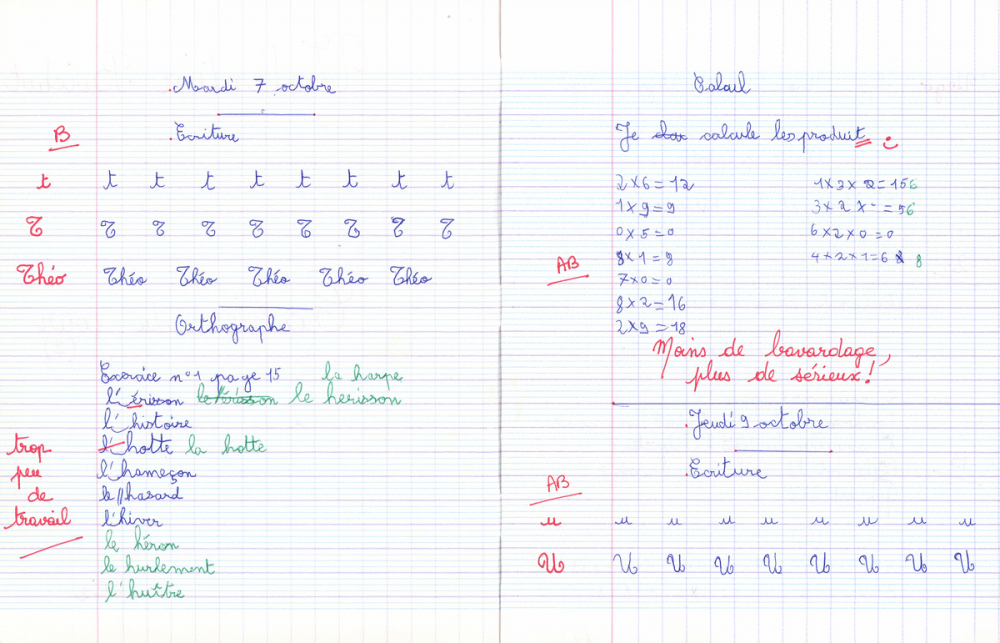 Mardi 7 octobre
B
Ecriture
t t t t t t t t t
T T T T T T T T T
Théo Théo Théo Théo Théo Théo
Orthographe
Exercice n°1 page 15 la harpe
l'érisson le hérisson le herisson
l'histoire
trop l'hotte la hotte
peu l'hameçon
de le//hasard
travail l'hiver
le héron
le hurlement
l'huître
Calcul
Je calcule les produit
2×6=12 1×3×2=156
1×9=9 3×2×1=56
0×5=0 6×2×0=0
AB 9×1=9 4×2×1=6 8
7×0=0
8×2=16
2×9=18
Moins de bavardage,
plus de sérieux!
Jeudi 9 octobre
Ecriture
AB
u u u u u u u u u
U U U U U U U U U